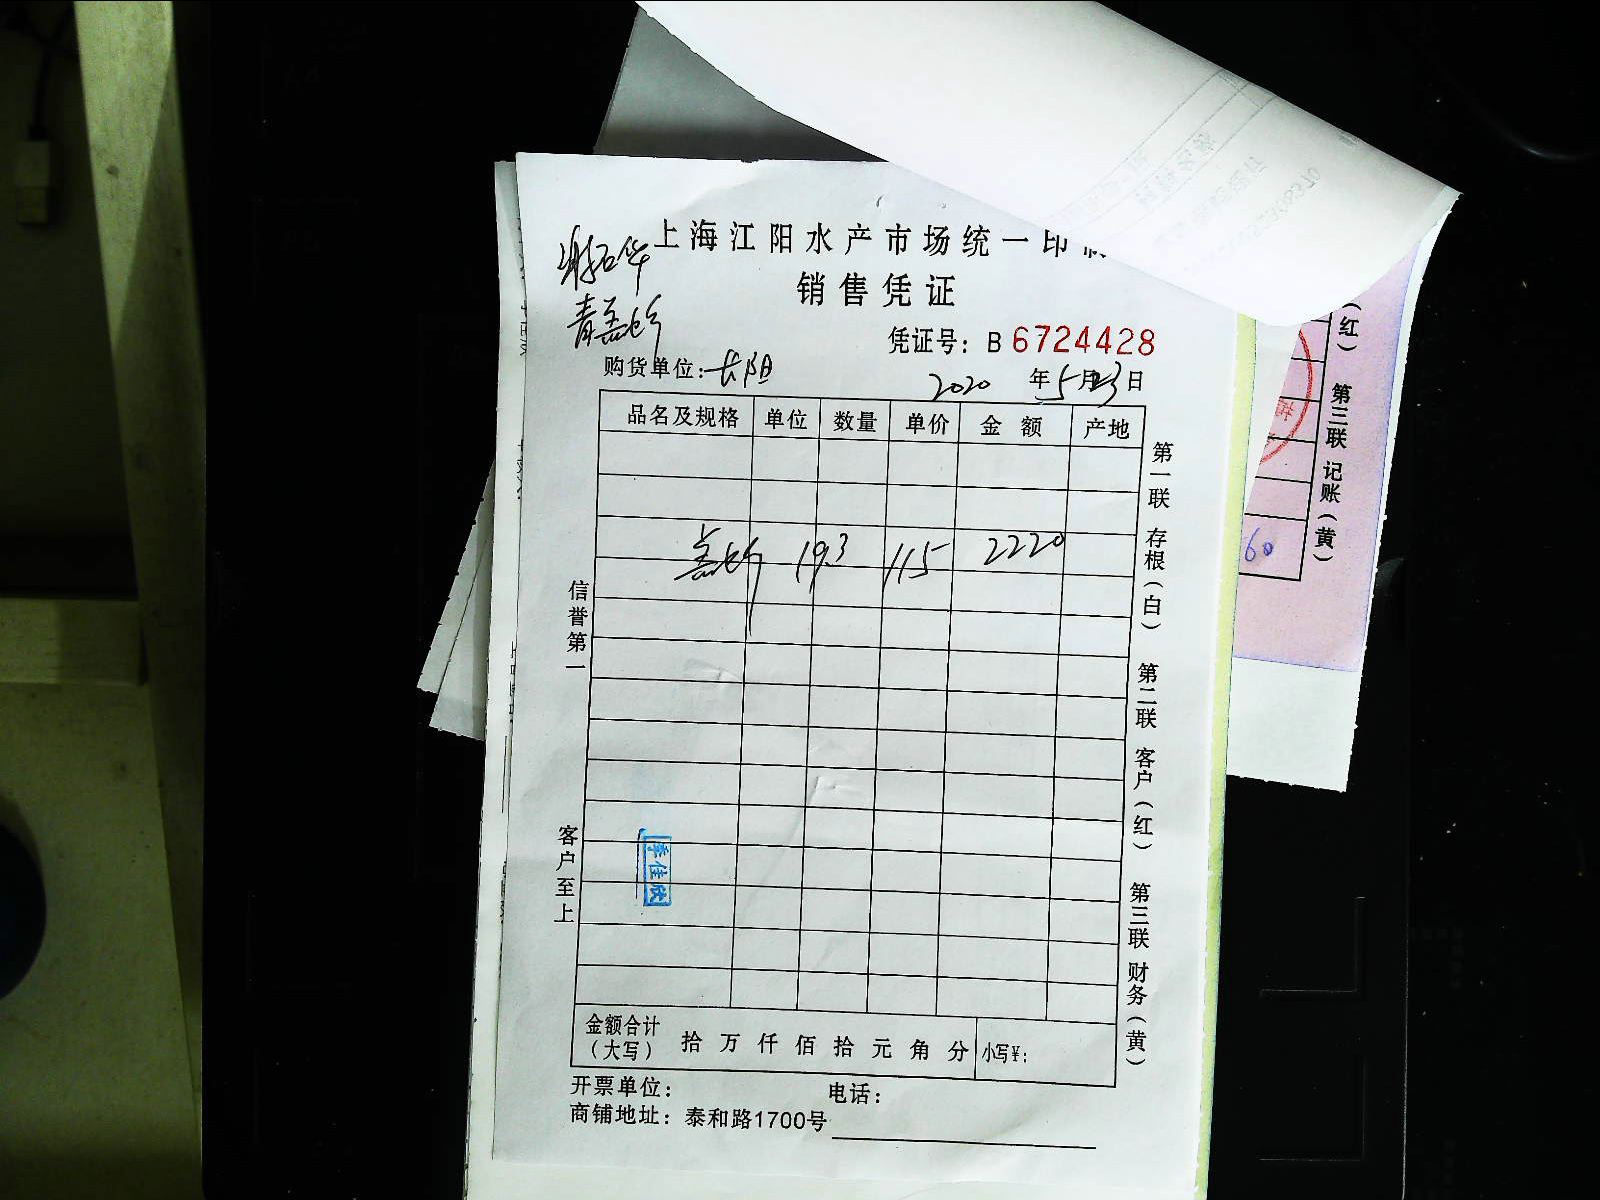 上海江阳水产市场统一印制
销售凭证
凭证号：B 6724428
购货单位：长阳
2020 年5月23日
品名及规格 单位 数量 单价 金 额 产地
19.3 115 2220
信誉第一
客户至上
季佳欣
第一联 存根（白） 第二联 客户（红） 第三联 财务（黄）
金额合计（大写） 拾 万 仟 佰 拾 元 角 分 小写¥：
开票单位： 电话：
商铺地址：泰和路1700号
（红） 第三联 记账（黄）
60